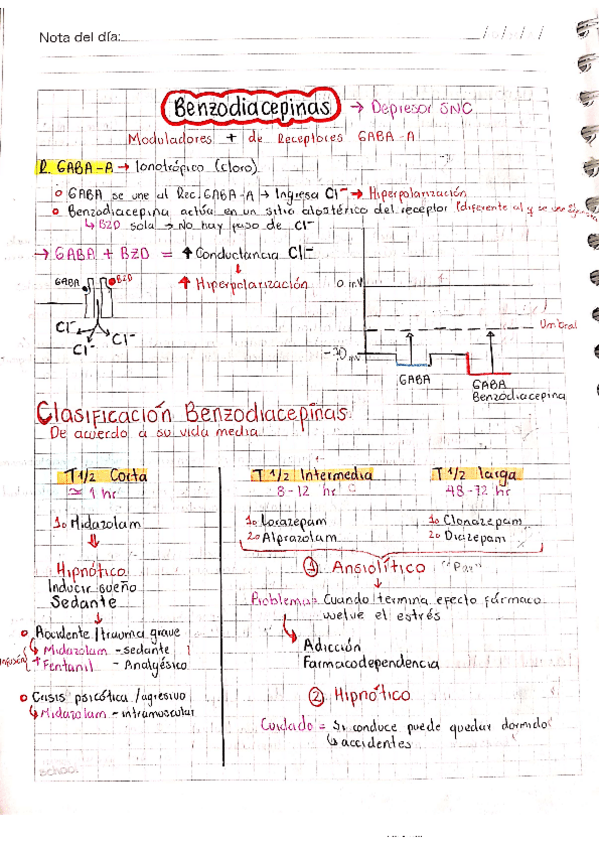 Nota del día:
Benzodiacepinas → Depresor SNC
Moduladores + de Receptores GABA-A
R. GABA-A → Ionotrópico (cloro)
GABA se une al Rec. GABA-A → Ingresa Cl⁻ → Hiperpolarización
Benzodiacepina actúa en un sitio alostérico del receptor (diferente al
↳ BZD sola → No hay paso de Cl⁻
→ GABA + BZD = ↑ Conductancia Cl⁻
↑ Hiperpolarización
GABA BZD
Cl⁻
Cl⁻
Cl⁻
0 mV
Umbral
GABA
GABA
Benzodiacepina
Clasificación Benzodiacepinas
De acuerdo a su vida media
T 1/2 Corta
≃ 1 hr
1o Midazolam
Hipnótico
Inducir sueño
Sedante
Accidente / trauma grave
Infusión
↳ Midazolam - sedante
+ Fentanil - Analgésico
Crisis psicótica / agresivo
↳ Midazolam - intramuscular
T 1/2 Intermedia
8-12 hr
1o Lorazepam
2o Alprazolam
T 1/2 larga
48-72 hr
1o Clonazepam
2o Diazepam
① Ansiolítico "Paz"
Problema: Cuando termina efecto fármaco
vuelve el estrés
Adicción
Farmacodependencia
② Hipnótico
Cuidado = Si conduce puede quedar dormido
↳ accidentes
school